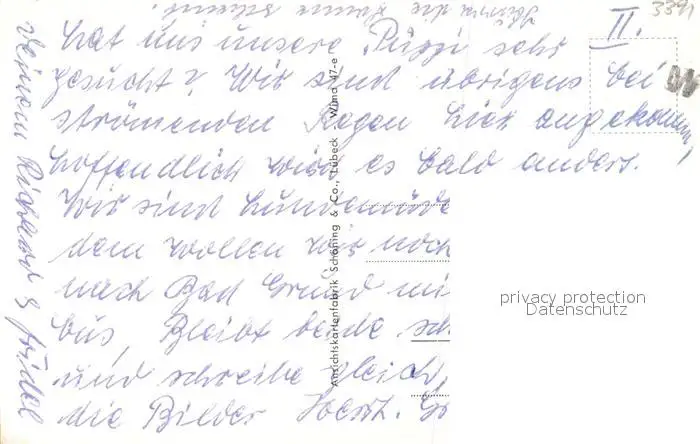 II.
3391
hat uns unsere Puzzi sehr
gesucht? Wir sind übrigens bei
strömenden Regen hier angekommen,
hoffendlich wird es bald anders.
Wir sind hundemüde
dem wollen wir noch
nach Bad Grund mi
bus, Bleibt beide sch
und schreibe gleich,
die Bilder Horst. Gr
Ansichtskartenfabrik Schöning & Co., Lübeck - Wilma 47-e
privacy protection
Datenschutz